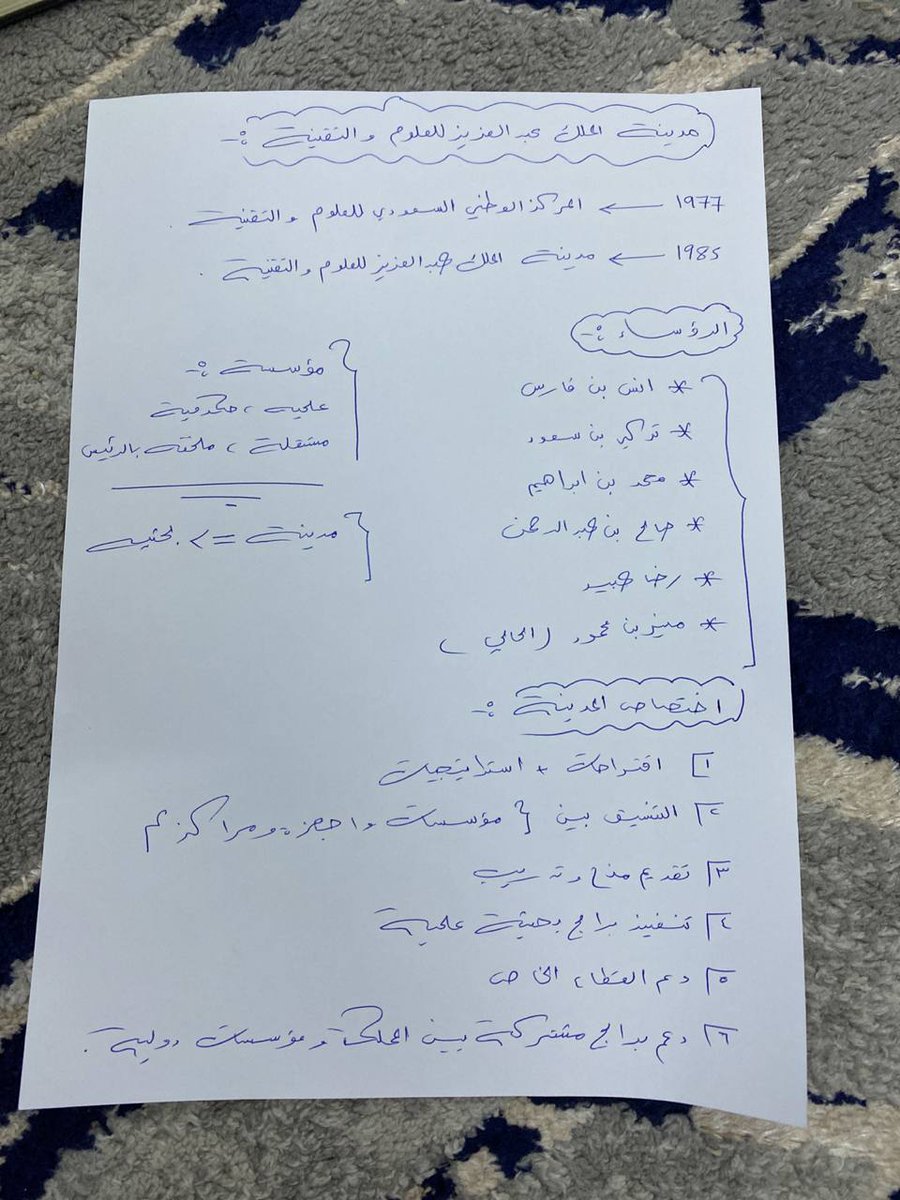 مدينة الملك عبد العزيز للعلوم والتقنية :-
1977 ← المركز الوطني السعودي للعلوم والتقنية .
1985 ← مدينة الملك عبد العزيز للعلوم والتقنية .
الرؤساء :-
* انس بن فارس
* تركي بن سعود
* محمد بن ابراهيم
* صالح بن عبد الرحمن
* رضا عبيد
* منير بن محمود (الحالي)
مؤسسة :-
علميه ، حكومية
مستقلة ، ملحقه بالرئيس
مدينة => بحثيه
اختصاص المدينة :-
١] اقتراحات + استراتيجيات
٢] التنسيق بين } مؤسسات واجهزة ومراكز
٣] تقديم منح وتدريب
٤] تنفيذ برامج بحثية علمية
٥] دعم القطاع الخاص
٦] دعم برامج مشتركة بين المملكة ومؤسسات دولية .